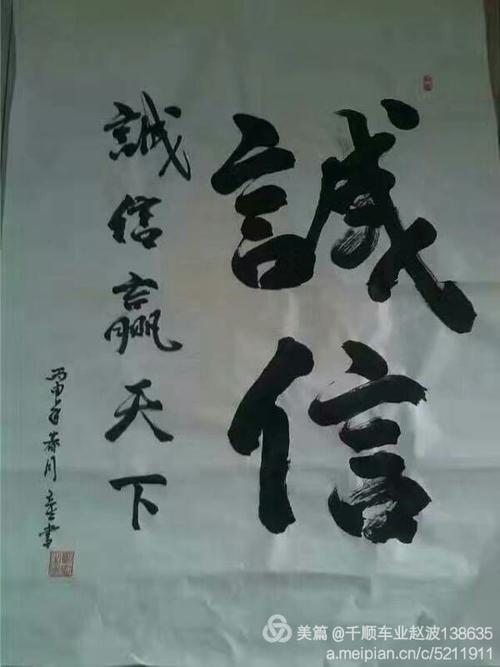 誠信
誠信贏天下
丙申年春月 書
美篇 @千顺车业赵波138635
a.meipian.cn/c/5211911